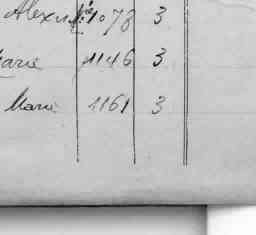 Alexis 1073 3
Marie 1146 3
Marie 1161 3